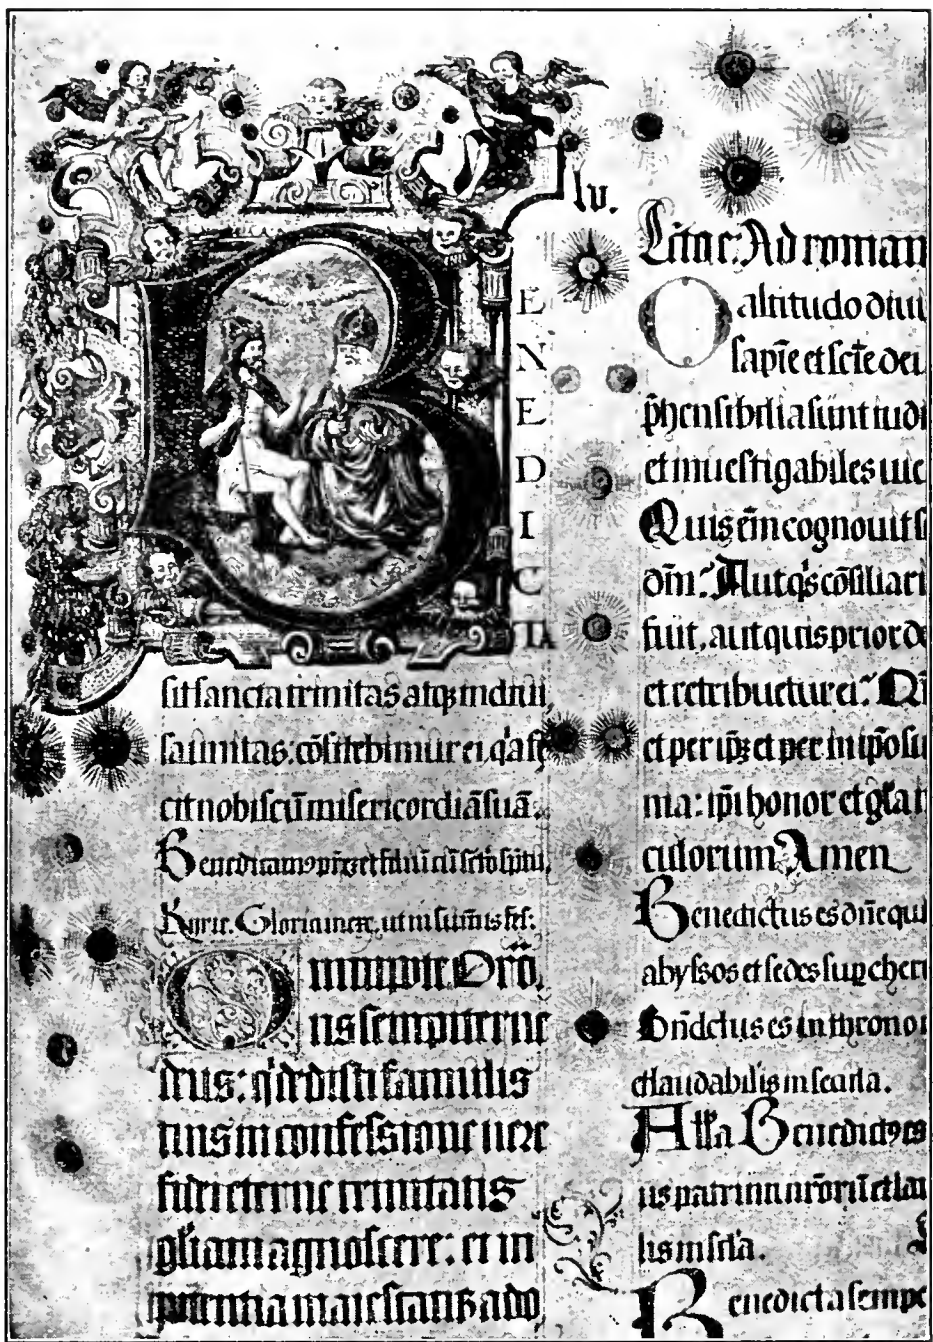 lv.
BENEDICTA
sit sancta trinitas atqꝫ indiui
sa unitas. cōfitebimur ei, qa fe
cit nobiscū misericordiā suā.
Benedicam⁹ prēꝫ et filiū cū scto spitu
Kyrie. Gloria in exc. ut in summis fes:
Omnipōte Oro,
ns sempiterne
deus: q dedisti famulis
tuis in confessione uere
fidei eterne trinitatis
gliam agnoscere: et in
potentia maiestatis ado
Lctio epl: Ad roman
O altitudo diui
sapiē et sctē dei
phensibilia sunt iudi
et inuestigabiles uie
Quis em̄ cognouit s
dn̄i? Aut qs cōsiliari
fuit, aut quis prior de
et retribuetur ei? Qm̄
et per ip̄ꝫ et per in ip̄o su
nia: ip̄i honor et gl̄a i
culorum Amen
Benedictus es dn̄e qui
abyssos et sedes sup cheru
Bn̄dctus es in throno r
et laudabilis in secula.
Alla Benedict⁹ es
us patrum nr̄orū et lau
lis in scl̄a.
Benedicta sempe